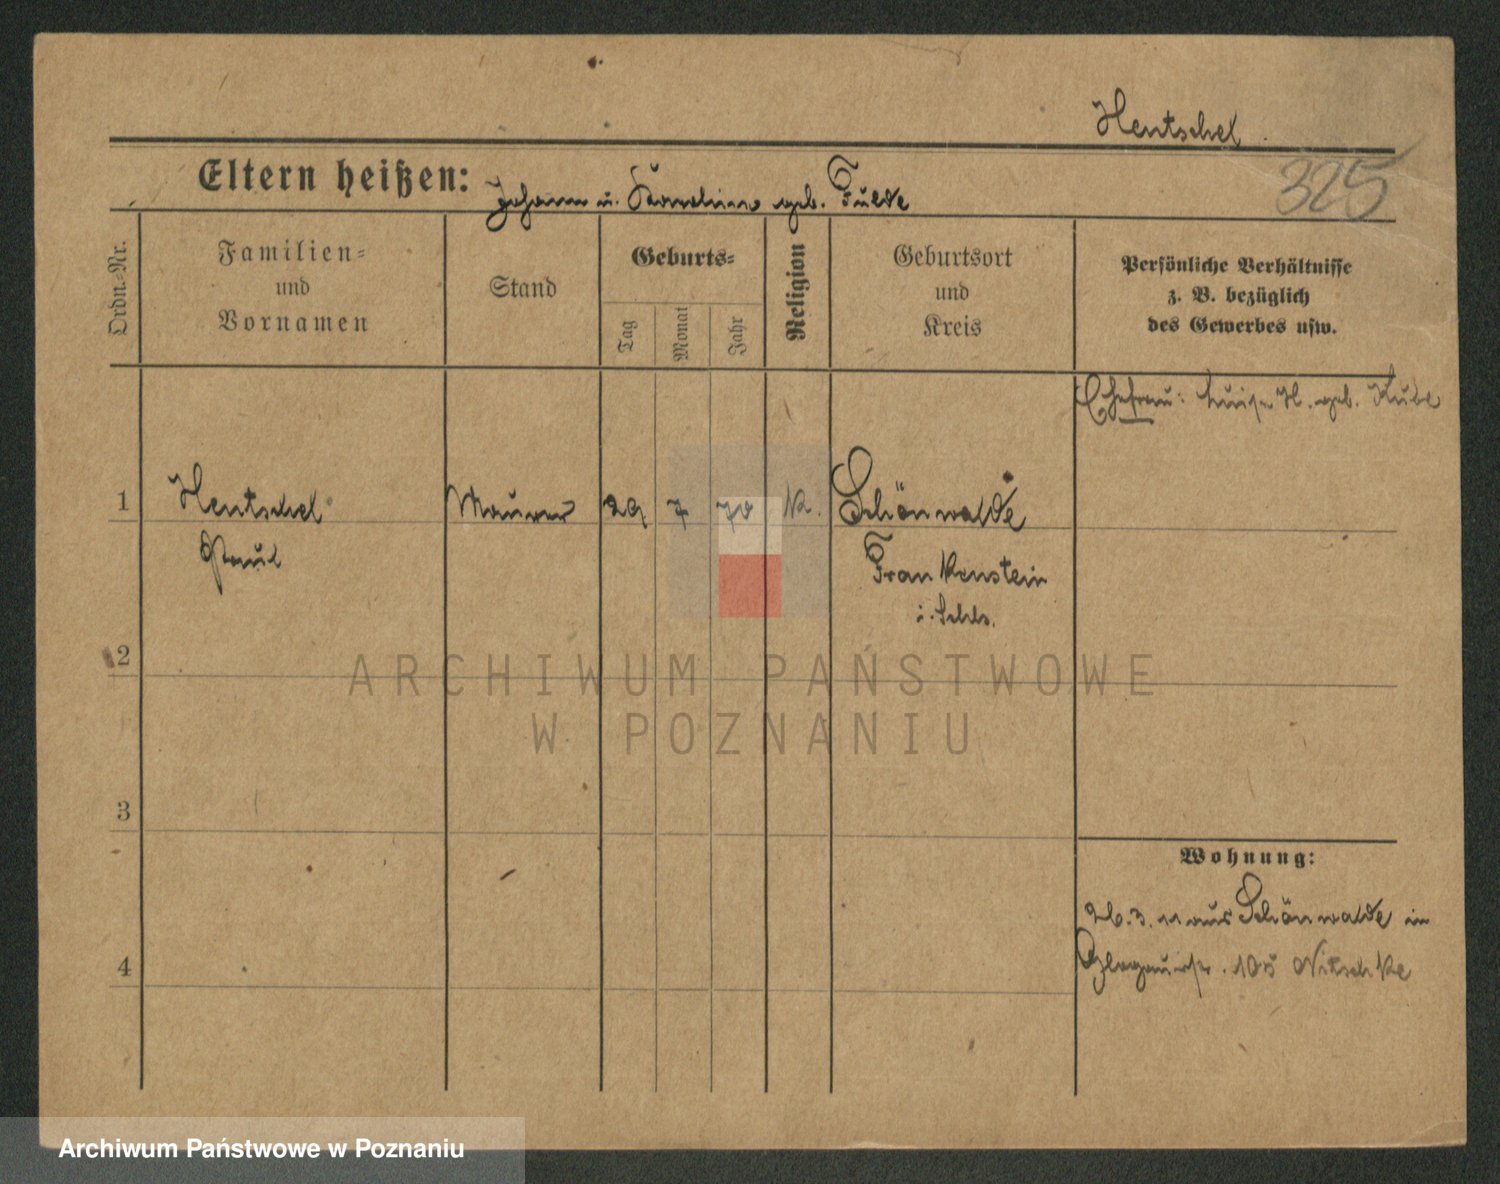 Hentschel.
325
Eltern heißen: Johann u. Karoline geb. Fulde
Ordn.-Nr.
Familien-
und
Vornamen
Stand
Geburts-
Tag
Monat
Jahr
Religion
Geburtsort
und
Kreis
Persönliche Verhältnisse
z. B. bezüglich
des Gewerbes usw.
Ehefrau: Luise H. geb. Kube
1 Hentschel Maurer 29 7 70 K. Schönwalde
Paul Frankenstein
i. Schls.
2
3
4
Wohnung:
26.3.11 aus Schönwalde in
Glogauerstr. 105 Nitschke
ARCHIWUM PAŃSTWOWE
W POZNANIU
Archiwum Państwowe w Poznaniu